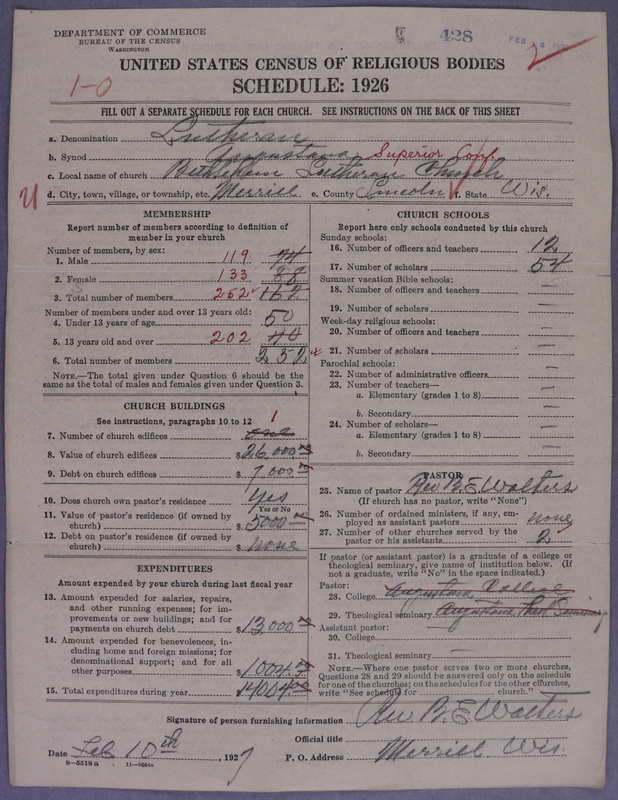 DEPARTMENT OF COMMERCE
BUREAU OF THE CENSUS
WASHINGTON
428
FEB
2
UNITED STATES CENSUS OF RELIGIOUS BODIES
1-0
SCHEDULE: 1926
FILL OUT A SEPARATE SCHEDULE FOR EACH CHURCH. SEE INSTRUCTIONS ON THE BACK OF THIS SHEET
a. Denomination Lutheran
b. Synod Augustana Superior Conf.
c. Local name of church Bethlehem Lutheran Church
U d. City, town, village, or township, etc. Merrill e. County Lincoln f. State Wis.
MEMBERSHIP
Report number of members according to definition of
member in your church
Number of members, by sex:
1. Male 119 74
2. Female 133 88
3. Total number of members 252 162
Number of members under and over 13 years old:
4. Under 13 years of age 50
5. 13 years old and over 202 40
6. Total number of members 252
NOTE.—The total given under Question 6 should be the
same as the total of males and females given under Question 3.
CHURCH BUILDINGS
See instructions, paragraphs 10 to 12
1
7. Number of church edifices one
8. Value of church edifices $26,000
9. Debt on church edifices $7,000
10. Does church own pastor's residence? Yes
Yes or No
11. Value of pastor's residence (if owned by
church) $5000
12. Debt on pastor's residence (if owned by
church) $none
EXPENDITURES
Amount expended by your church during last fiscal year
13. Amount expended for salaries, repairs,
and other running expenses; for im-
provements or new buildings; and for
payments on church debt $13,000
14. Amount expended for benevolences, in-
cluding home and foreign missions; for
denominational support; and for all
other purposes $1004
15. Total expenditures during year $14004
CHURCH SCHOOLS
Report here only schools conducted by this church
Sunday schools:
16. Number of officers and teachers 12
17. Number of scholars 54
Summer vacation Bible schools:
18. Number of officers and teachers —
19. Number of scholars —
Week-day religious schools:
20. Number of officers and teachers —
21. Number of scholars —
Parochial schools:
22. Number of administrative officers —
23. Number of teachers—
a. Elementary (grades 1 to 8) —
b. Secondary —
24. Number of scholars—
a. Elementary (grades 1 to 8) —
b. Secondary —
PASTOR
25. Name of pastor Rev B. E. Walters
(If church has no pastor, write "None")
26. Number of ordained ministers, if any, em-
ployed as assistant pastors none
27. Number of other churches served by the
pastor or his assistants 2
If pastor (or assistant pastor) is a graduate of a college or
theological seminary, give name of institution below. (If
not a graduate, write "No" in the space indicated.)
Pastor:
28. College Augustana College
29. Theological seminary Augustana Theol Seminary
Assistant pastor:
30. College —
31. Theological seminary —
NOTE.—Where one pastor serves two or more churches,
Questions 28 and 29 should be answered only on the schedule
for one of the churches; on the schedules for the other churches,
write "See schedule for church."
Signature of person furnishing information Rev B. E. Walters
Official title
Date Feb 10th, 1927 P. O. Address Merrill Wis.
8—5518 a